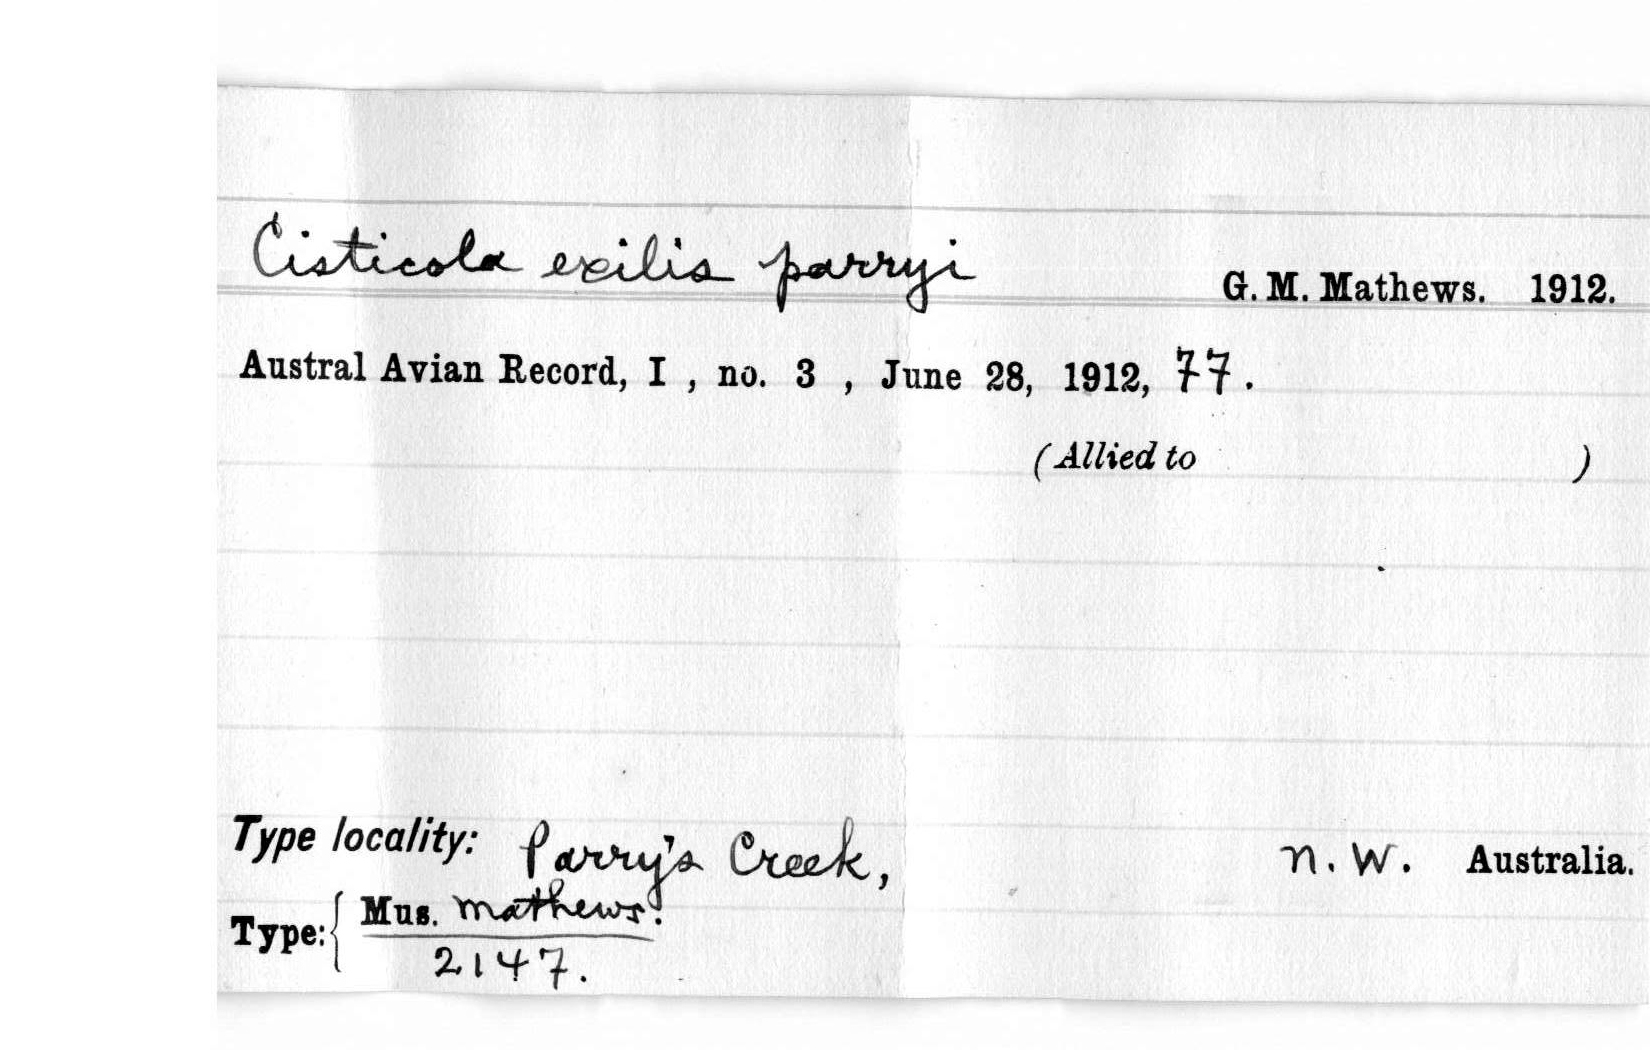 Cisticola exilis parryi G. M. Mathews. 1912.
Austral Avian Record, I , no. 3 , June 28, 1912, 77.
(Allied to )
Type locality: Parry's Creek, N. W. Australia.
Type: { Mus. Mathews.
2147.